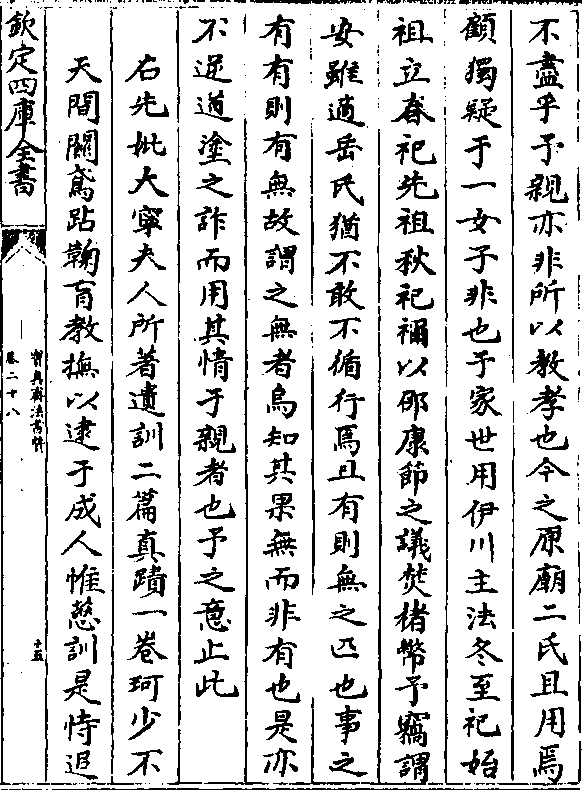 不盡乎予親亦非所以教孝也今之原廟二氏且用焉
顧獨疑于一女子非也予家世用伊川主法冬至祀始
祖立春祀先祖秋祀禰以邵康節之議焚楮幣予竊謂
安雖適岳氏猶不敢不循行焉且有則無之匹也事之
有有則有無故謂之無者烏知其果無而非有也是亦
不逆道塗之詐而用其情于親者也予之意止此
右先妣大寧夫人所著遺訓二篇真蹟一卷珂少不
天間關鳶跕鞠育教撫以逮于成人惟慈訓是恃追
欽定四庫全書
寶真齋法書贊
卷二十八
十五